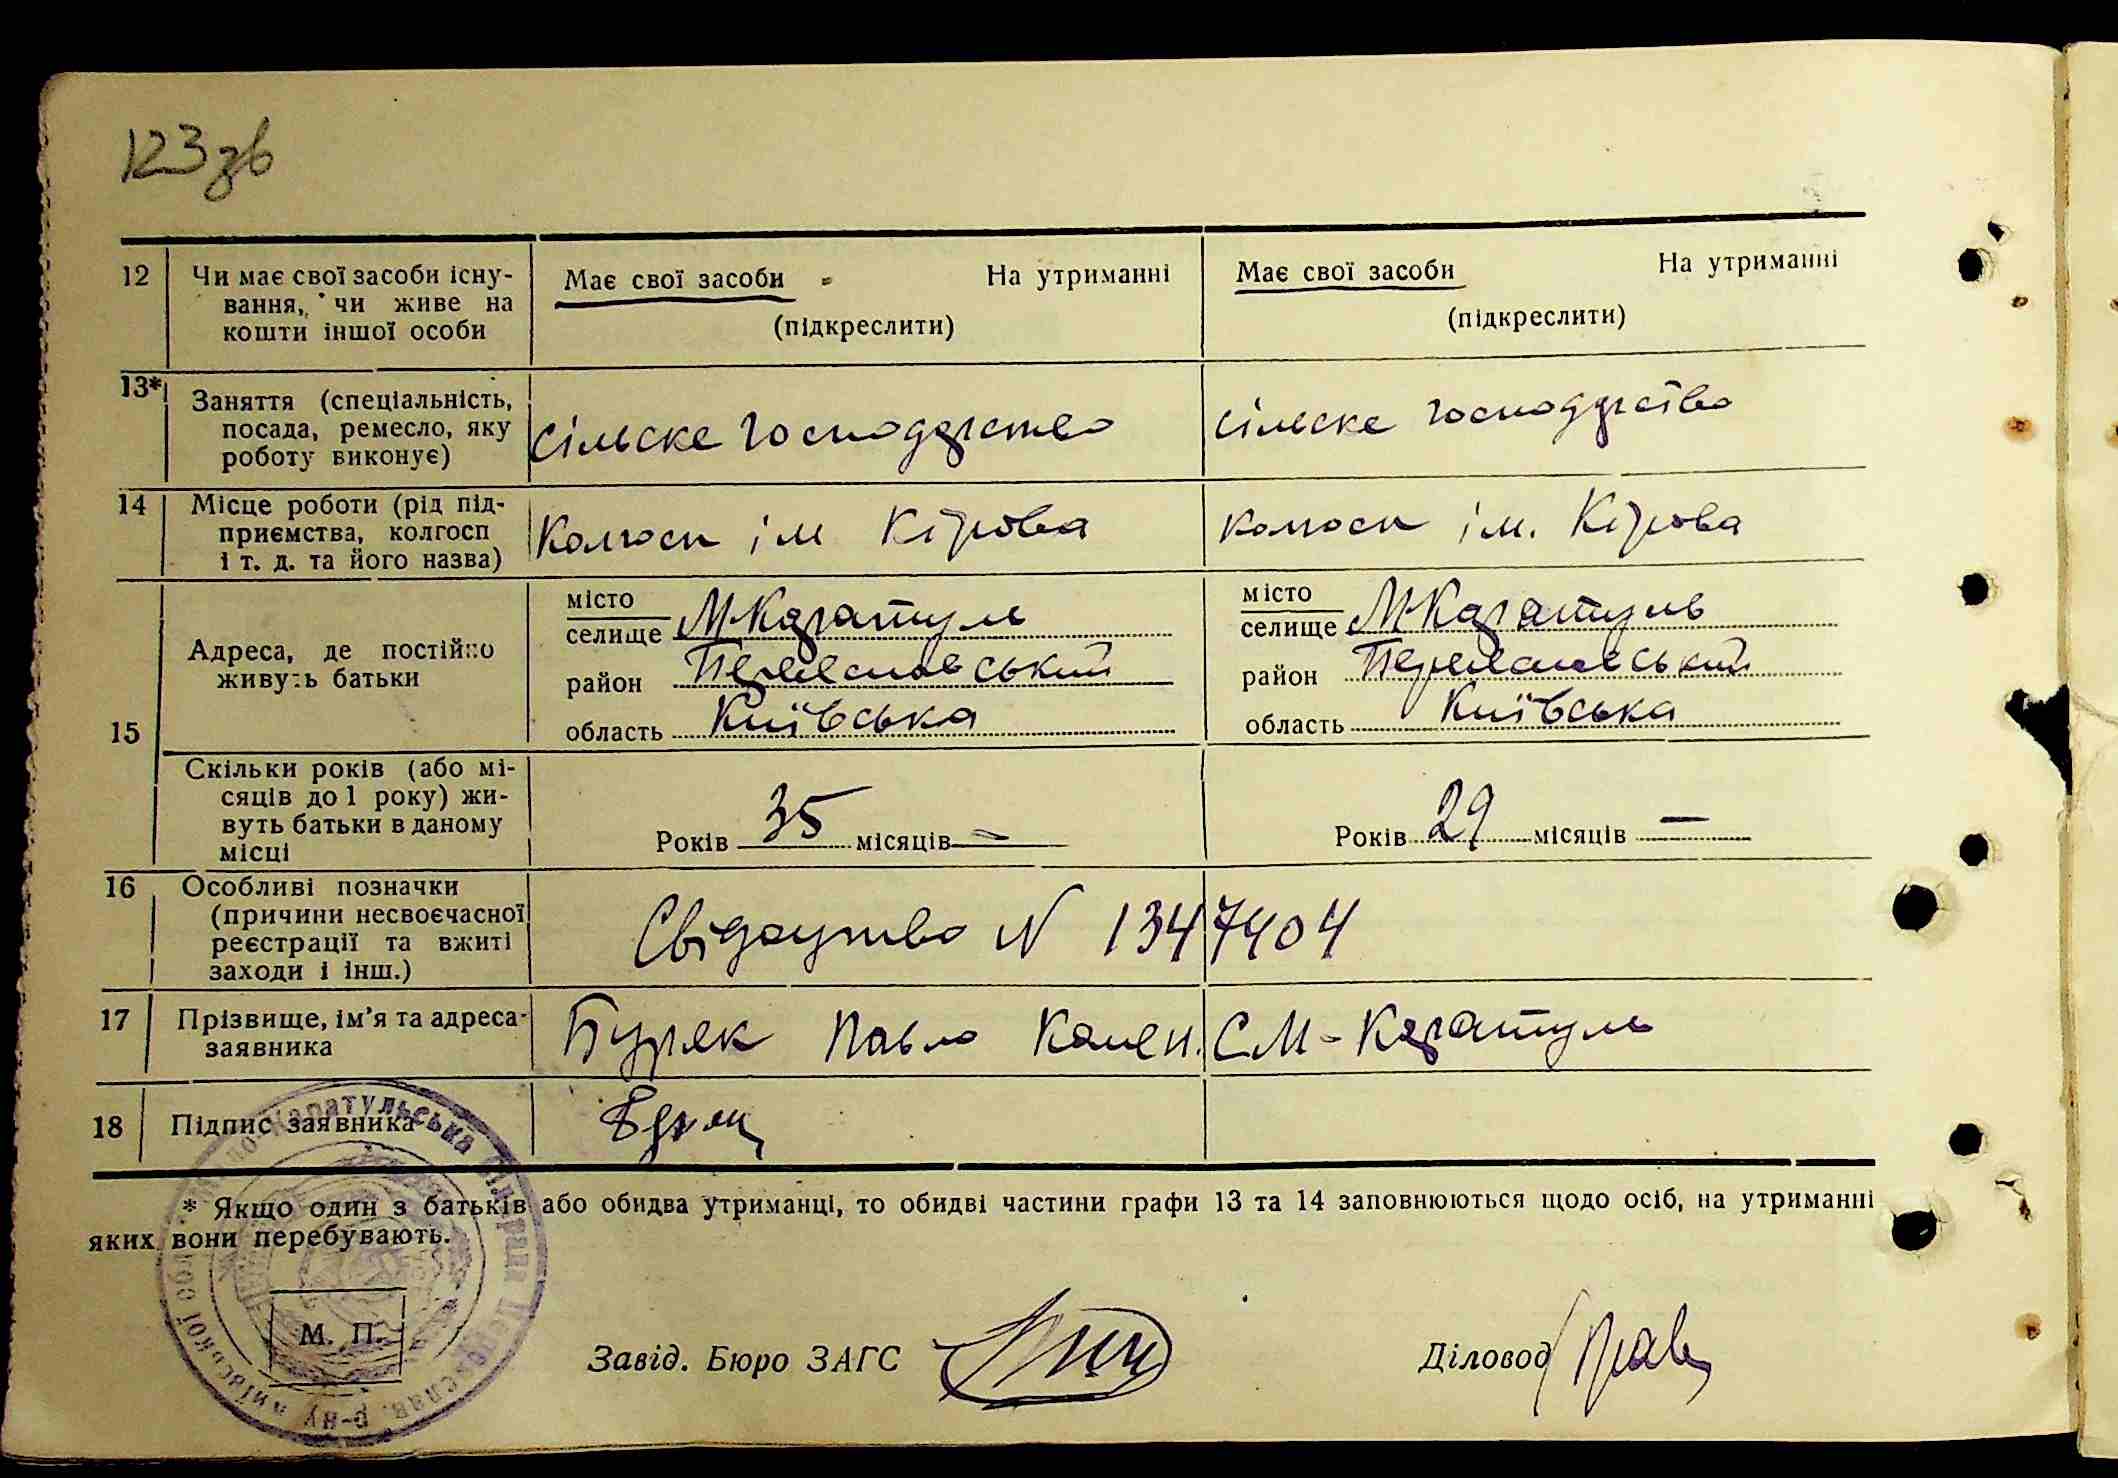 123зв
12 Чи має свої засоби існу-
вання, чи живе на
кошти іншої особи
Має свої засоби На утриманні
(підкреслити)
Має свої засоби На утриманні
(підкреслити)
13* Заняття (спеціальність,
посада, ремесло, яку
роботу виконує)
сільске господарство
сільске господарство
14 Місце роботи (рід під-
приємства, колгосп
і т. д. та його назва)
Колгосп ім Кірова
колгосп ім. Кірова
15
Адреса, де постійно
живуть батьки
місто
селище М-Каратуль
район Переяславський
область Київська
місто
селище М-Каратуль
район Переяславський
область Київська
Скільки років (або мі-
сяців до 1 року) жи-
вуть батьки в даному
місці
Років 35 місяців —
Років 29 місяців —
16 Особливі позначки
(причини несвоєчасної
реєстрації та вжиті
заходи і інш.)
Свідоцтво N 1347404
17 Прізвище, ім'я та адреса
заявника
Буряк Павло Камен. С М-Каратуль
18 Підпис заявника
* Якщо один з батьків або обидва утриманці, то обидві частини графи 13 та 14 заповнюються щодо осіб, на утриманні
яких вони перебувають.
М. П.
Завід. Бюро ЗАГС
Діловод